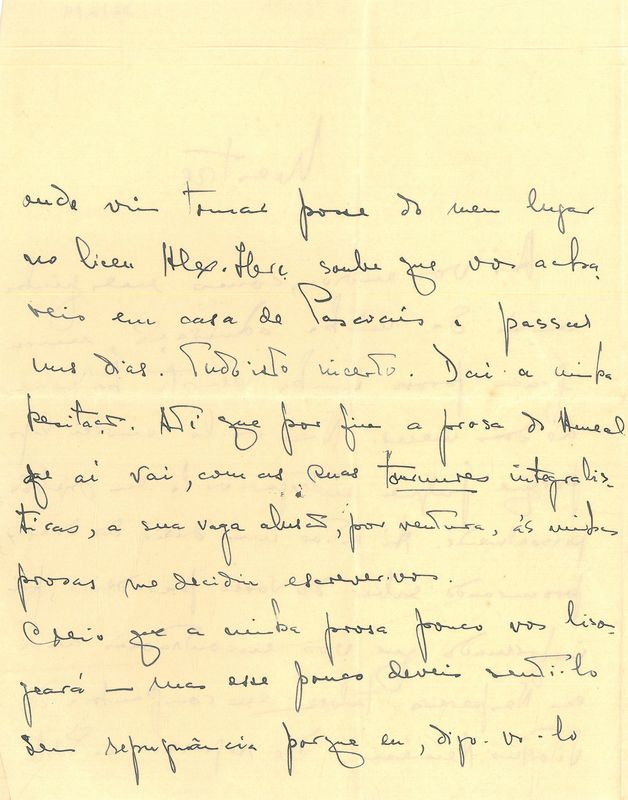 onde vim tomar posse do meu lugar
no liceu Alex. Herc. soube que vos acha-
veis em casa de Pascoais a passar
uns dias. Tudo isto incerto. Daí a minha
hesitação. Até que por fim a prosa do
que aí vai, com as suas tournures integralis-
ticas, a sua vaga alusão, por ventura, ás minhas
prosas me decidiu escrever-vos.
Creio que a minha prosa pouco vos lison-
geará — mas esse pouco deveis senti-lo
sem repugnância porque eu, digo-vo-lo